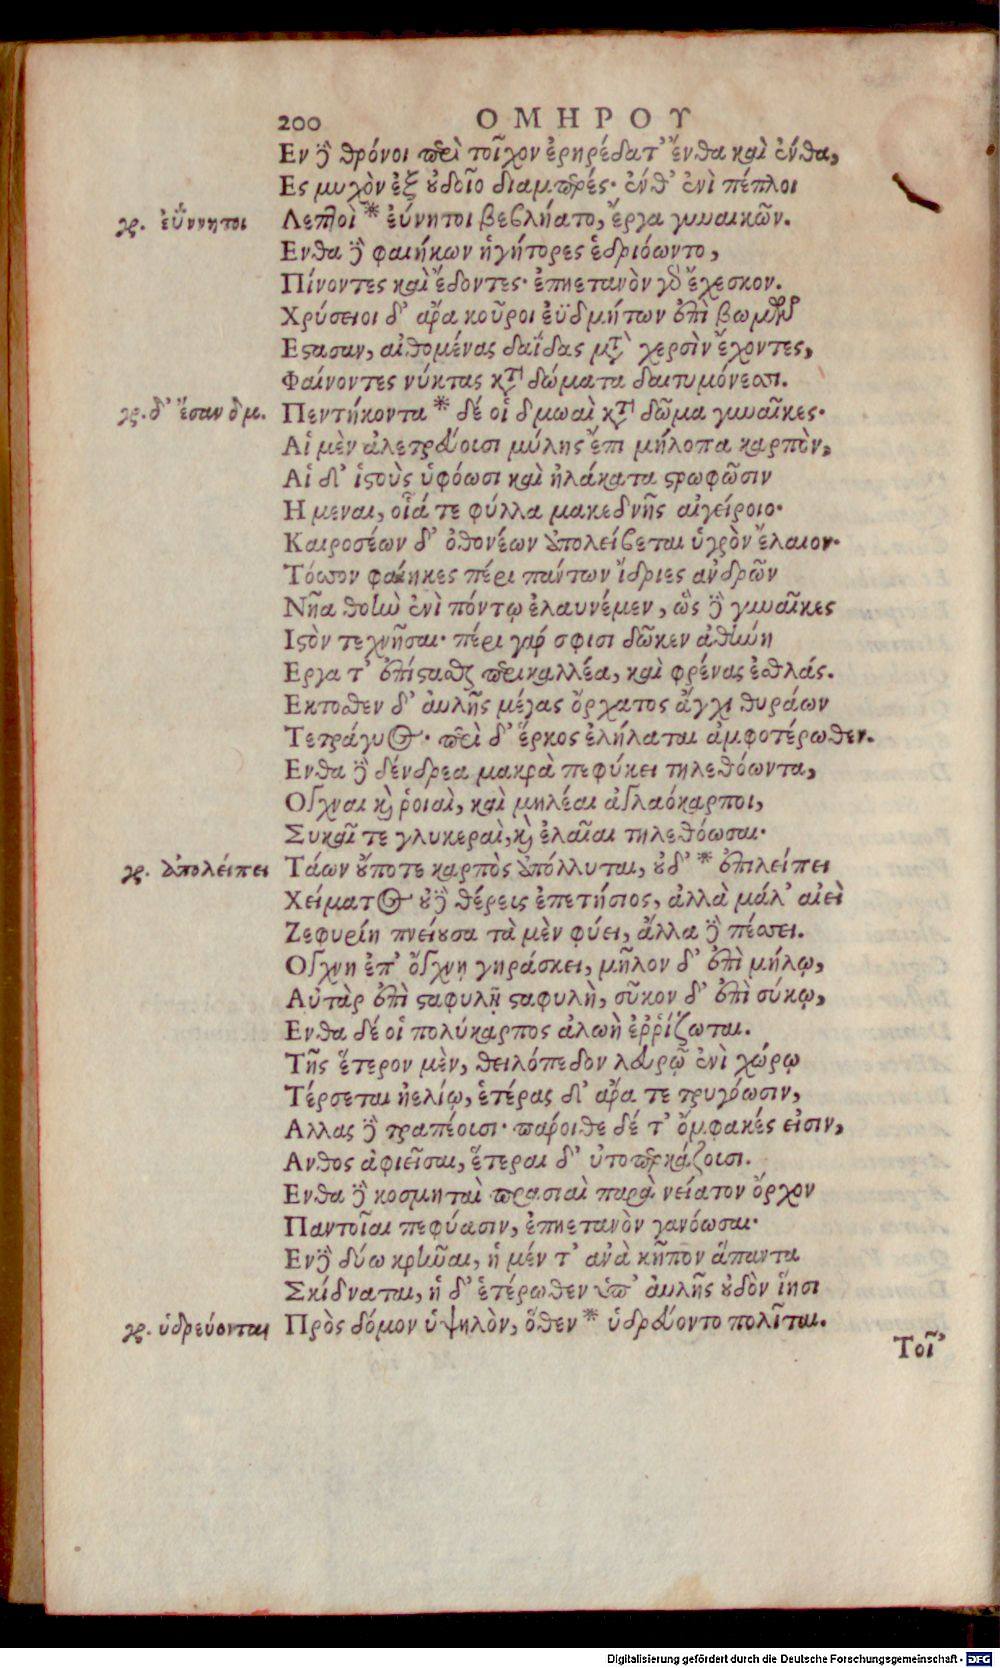 200 ΟΜΗΡΟΥ
Εν δὲ θρόνοι περὶ τοῖχον ἐρηρέδατ' ἔνθα καὶ ἔνθα,
Ες μυχὸν ἐξ ουδοῖο διαμπερές· ἔνθ' ἐνὶ πέπλοι
γρ. ἐΰννητοι Λεπτοὶ * ἐύνητοι βεβλήατο, ἔργα γυναικῶν.
Ενθα δὲ φαιήκων ἡγήτορες ἑδριόωντο,
Πίνοντες καὶ ἔδοντες· ἐπηετανὸν γὸ ἔχεσκον.
Χρύσειοι δ' ἄρα κοῦροι ἐϋδμήτων ἐπὶ βωμῶν
Εστασαν, αἰθομένας δαΐδας μετὰ χερσὶν ἔχοντες,
Φαίνοντες νύκτας κατὰ δώματα δαιτυμόνεσσι.
γρ. δ' ἔσαν δμ. Πεντήκοντα * δέ οἱ δμωαὶ κατὰ δῶμα γυναῖκες·
Αἱ μὲν ἀλετρεύοισι μύλης ἔπι μήλοπα καρπὸν,
Αἱ δ' ἱστοὺς ὑφόωσι καὶ ἠλάκατα στρωφῶσιν
Η μεναι, οἷά τε φύλλα μακεδνῆς αἰγείροιο·
Καιροσέων δ' ὀθονέων ἀπολείβεται ὑγρὸν ἔλαιον·
Τόσσον φαίηκες πέρι πάντων ἴδριες ἀνδρῶν
Νῆα θοὴν ἐνὶ πόντῳ ἐλαυνέμεν, ὣς δὲ γυναῖκες
Ιστὸν τεχνῆσαι· πέρι γάρ σφισι δῶκεν ἀθήνη
Εργα τ' ἐπίστασθαι περικαλλέα, καὶ φρένας ἐσθλάς.
Εκτοσθεν δ' αὐλῆς μέγας ὄρχατος ἄγχι θυράων
Τετράγυος· περὶ δ' ἕρκος ἐλήλαται ἀμφοτέρωθεν.
Ενθα δὲ δένδρεα μακρὰ πεφύκει τηλεθόωντα,
Ογχναι καὶ ῥοιαὶ, καὶ μηλέαι ἀγλαόκαρποι,
Συκαῖ τε γλυκεραὶ, καὶ ἐλαῖαι τηλεθόωσαι·
γρ. ἀπολείπει Τάων οὔποτε καρπὸς ἀπόλλυται, ουδ' * ἐπιλείπει
Χείματος ουδὲ θέρεις ἐπετήσιος, ἀλλὰ μάλ' αἰεὶ
Ζεφυρίη πνείουσα τὰ μὲν φύει, ἄλλα δὲ πέσσει.
Ογχνη ἐπ' ὄγχνῃ γηράσκει, μῆλον δ' ἐπὶ μήλῳ,
Αὐτὰρ ἐπὶ σταφυλῇ σταφυλὴ, σῦκον δ' ἐπὶ σύκῳ,
Ενθα δέ οἱ πολύκαρπος ἀλωὴ ἐῤῥίζωται.
Τῆς ἕτερον μὲν, θειλόπεδον λευρῷ ἐνὶ χώρῳ
Τέρσεται ἠελίῳ, ἑτέρας δ' ἄρα τε τρυγόωσιν,
Αλλας δὲ τραπέοισι· πάροιθε δέ τ' ὄμφακές εἰσιν,
Ανθος ἀφιεῖσαι, ἕτεραι δ' ὑποπερκάζοισι.
Ενθα δὲ κοσμηταὶ πρασιαὶ παρὰ νείατον ὄρχον
Παντοῖαι πεφύασιν, ἐπηετανὸν γανόωσαι·
Εν δὲ δύω κρῆναι, ἡ μέν τ' ἀνὰ κῆπον ἅπαντα
Σκίδναται, ἡ δ' ἑτέρωθεν ὑπ' αὐλῆς ουδὸν ἵησι
γρ. ὑδρεύονται Πρὸς δόμον ὑψηλὸν, ὅθεν * ὑδρεύοντο πολῖται.
Τοῖ'
Digitalisierung gefördert durch die Deutsche Forschungsgemeinschaft - DFG